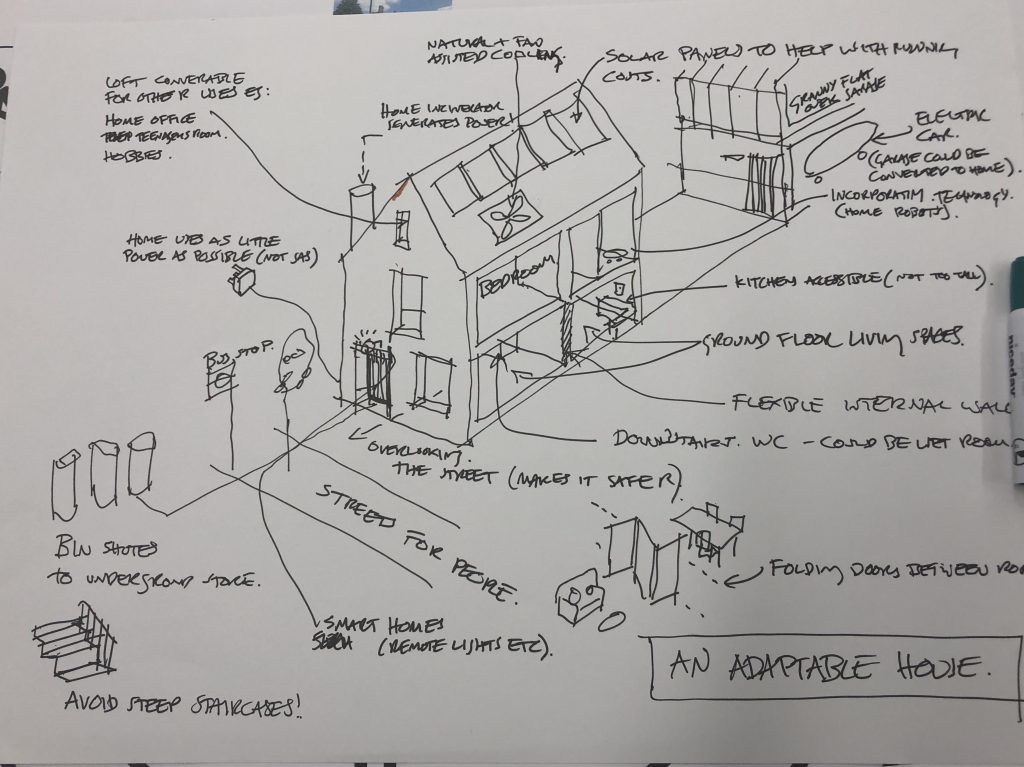 NATURAL + FAN
ASSISTED COOLING.
SOLAR PANELS TO HELP WITH RUNNING
COSTS.
LOFT CONVERTABLE
FOR OTHER USES ES:
HOME OFFICE
TEENAGERS ROOM.
HOBBIES.
HOME INCINERATOR
GENERATES POWER!
GRANNY FLAT
OVER GARAGE
ELECTRIC
CAR.
(GARAGE COULD BE
CONVERTED TO HOME).
INCORPORATING TECHNOLOGY.
(HOME ROBOTS).
HOME USES AS LITTLE
POWER AS POSSIBLE (NOT GAS)
BEDROOM
KITCHEN ACCESSIBLE (NOT TOO TALL).
BUS STOP.
GROUND FLOOR LIVING SPACES.
FLEXIBLE INTERNAL WALL
DOWNSTAIRS WC - COULD BE WET ROOM
OVERLOOKING
THE STREET (MAKES IT SAFER).
STREET FOR PEOPLE.
BIN SHUTES
TO UNDERGROUND STORE.
FOLDING DOORS BETWEEN
SMART HOMES
(REMOTE LIGHTS ETC).
AN ADAPTABLE HOUSE.
AVOID STEEP STAIRCASES!